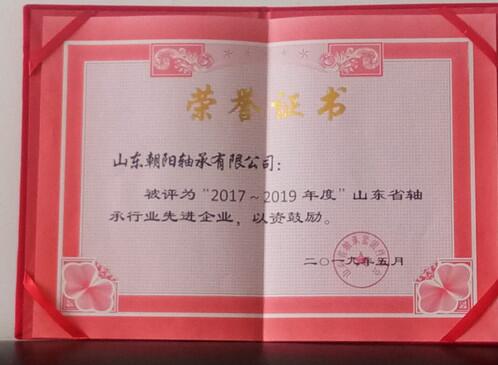 荣誉证书
山东朝阳轴承有限公司：
被评为“2017～2019年度”山东省轴
承行业先进企业，以资鼓励。
二〇一九年五月